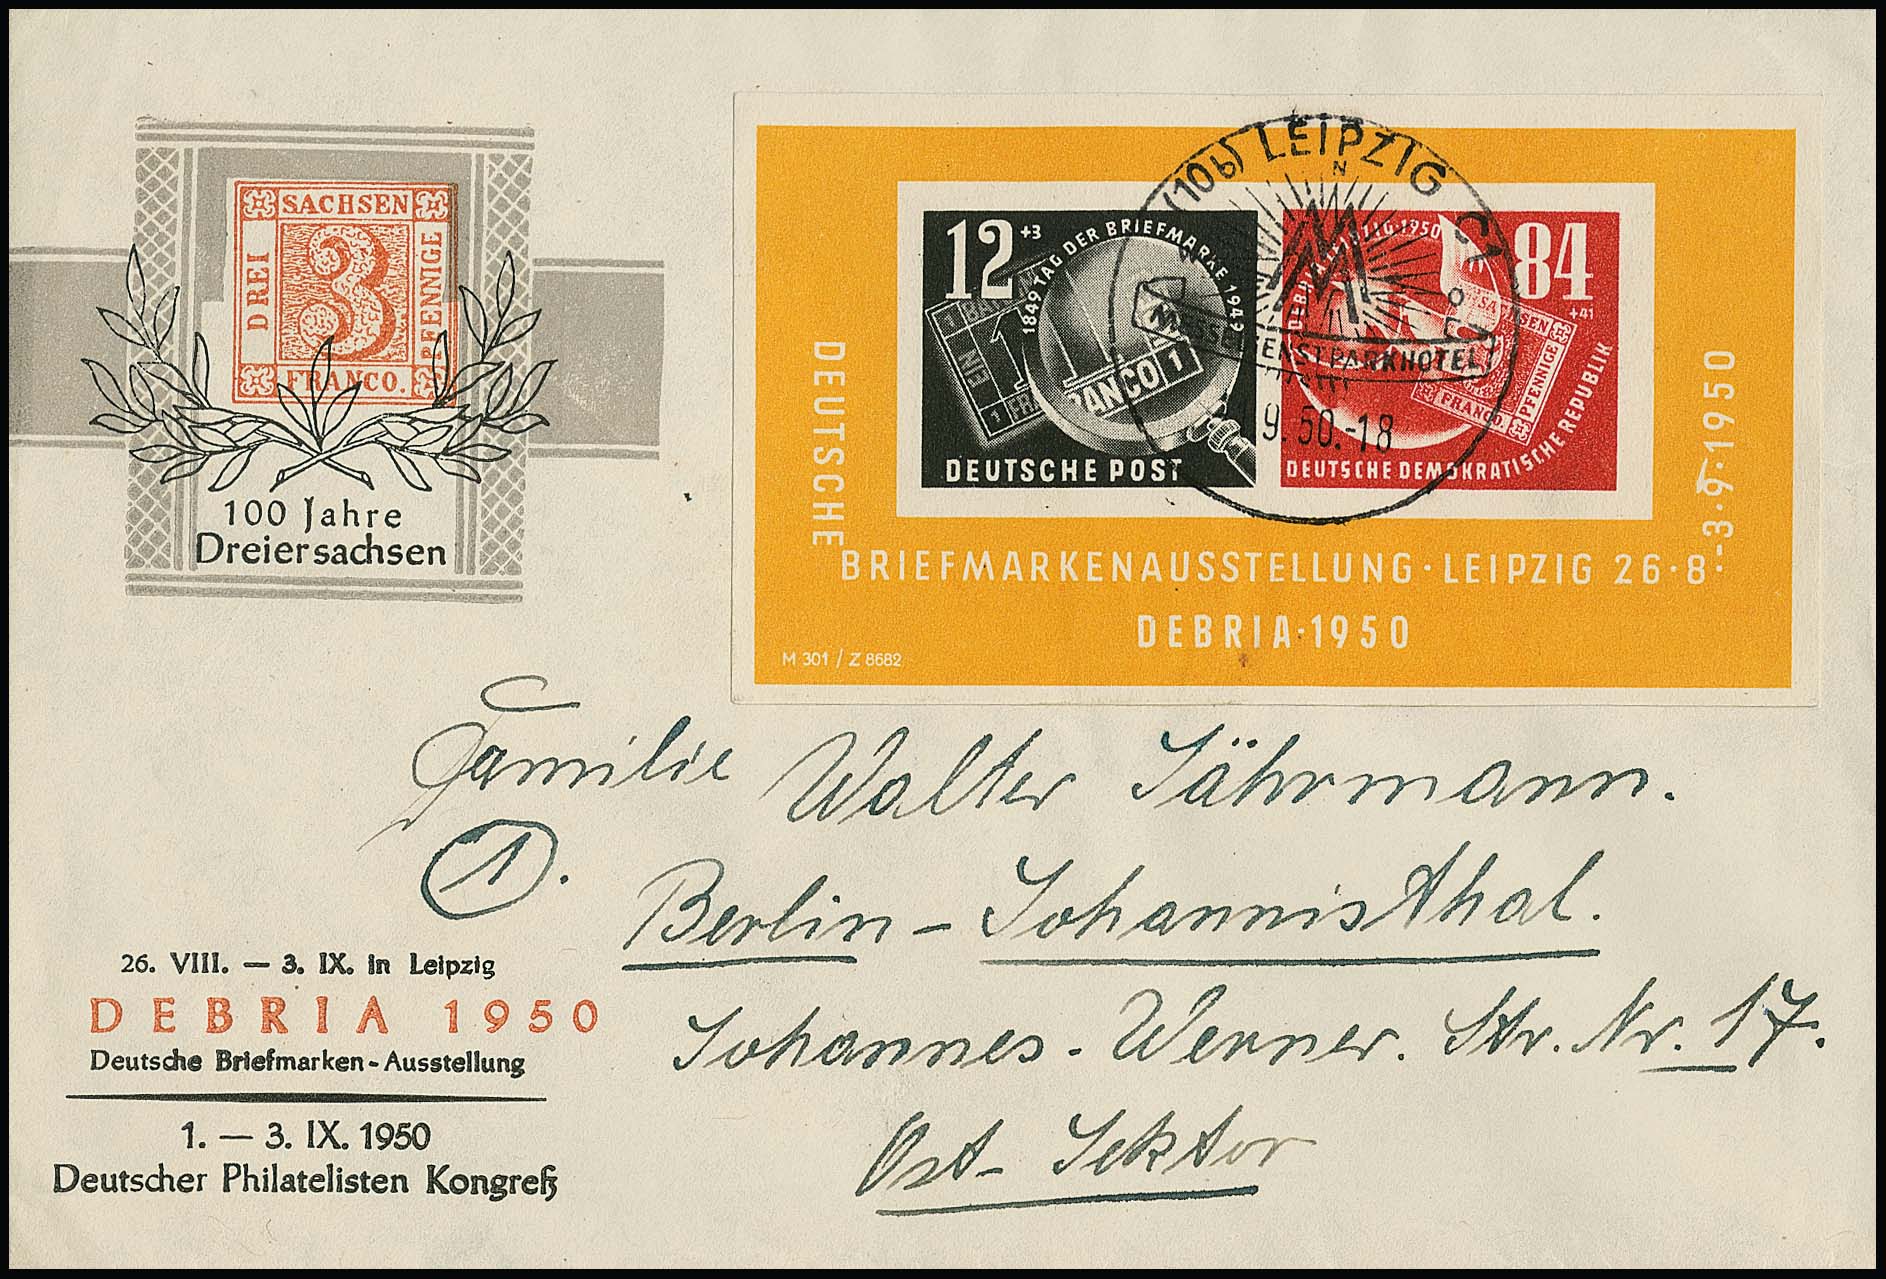 SACHSEN
DREI
3
PFENNIGE
FRANCO.
100 Jahre
Dreiersachsen
(10b) LEIPZIG C1
N
MESSEDIENST PARKHOTEL
9.50.-18
12 +3
1849 TAG DER BRIEFMARKE 1949
EIN
FRANCO 1
DEUTSCHE POST
84
+41
DEBRIA LEIPZIG·1950
SACHSEN
PFENNIGE
FRANCO.
DEUTSCHE DEMOKRATISCHE REPUBLIK
DEUTSCHE
BRIEFMARKENAUSSTELLUNG·LEIPZIG 26·8·-3·9·1950
DEBRIA·1950
M 301 / Z 8682
Familie Walter Jährmann.
1.
Berlin-Johannisthal.
Johannes-Werner. Str. Nr. 17.
Ost-Sektor
26. VIII. — 3. IX. in Leipzig
DEBRIA 1950
Deutsche Briefmarken-Ausstellung
1. — 3. IX. 1950
Deutscher Philatelisten Kongreß